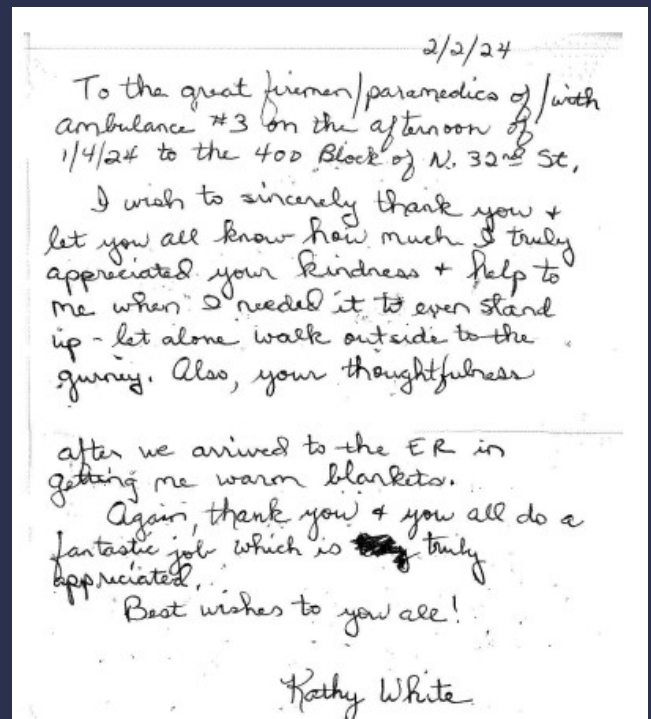 2/2/24
To the great firemen/paramedics of/with
ambulance #3 on the afternoon of
1/4/24 to the 400 Block of N. 32nd St.
I wish to sincerely thank you +
let you all know how much I truly
appreciated your kindness + help to
me when I needed it to even stand
up - let alone walk outside to the
gurney. Also, your thoughtfulness
after we arrived to the ER in
getting me warm blankets.
Again, thank you & you all do a
fantastic job which is truly
appreciated.
Best wishes to you all!
Kathy White